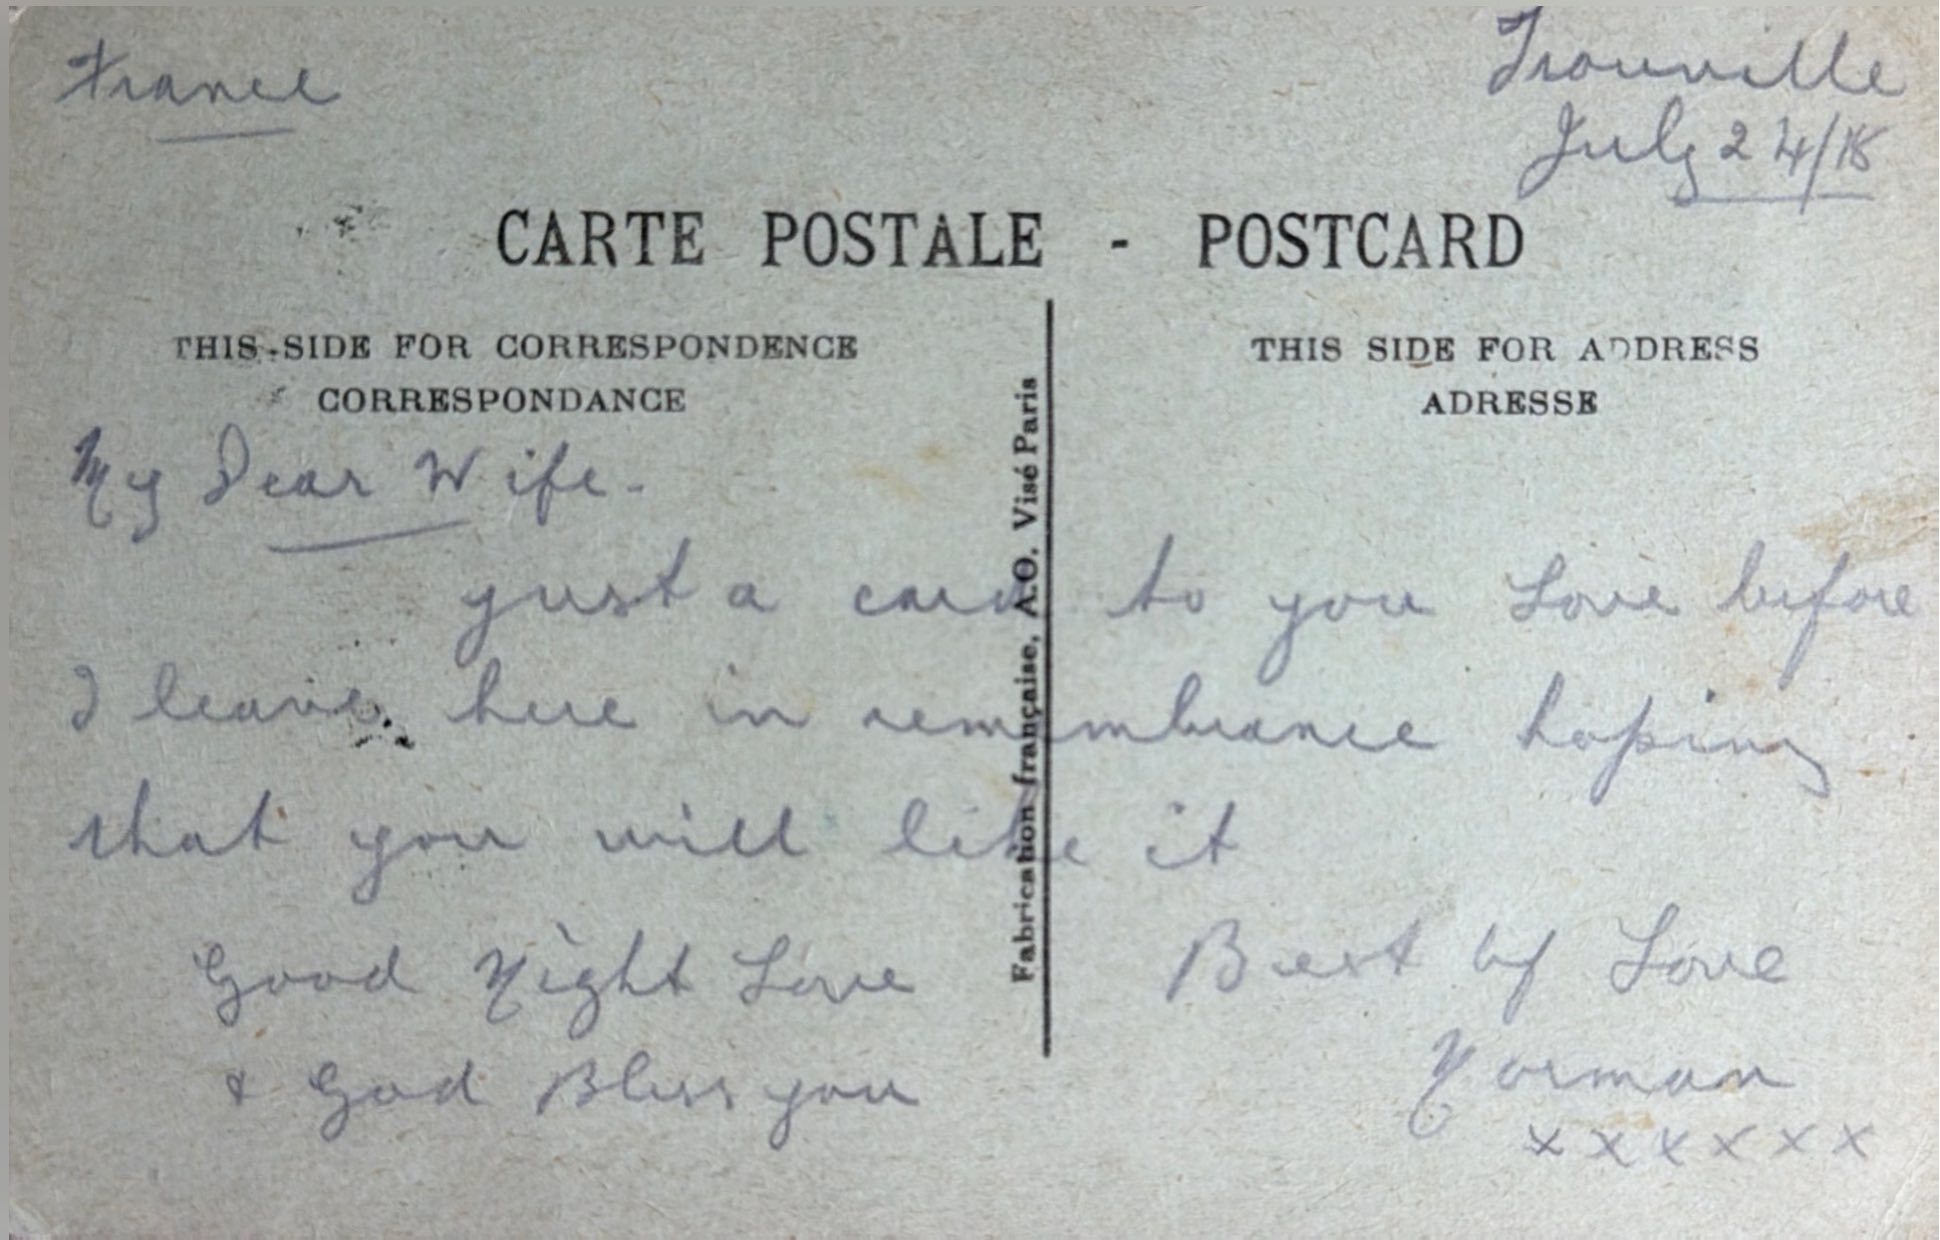 France
Trouville
July 24/18
CARTE POSTALE - POSTCARD
THIS SIDE FOR CORRESPONDENCE
CORRESPONDANCE
THIS SIDE FOR ADDRESS
ADRESSE
Fabrication française, A.O. Visé Paris
My Dear Wife -
just a card to you Love before
I leave here in remembrance hoping
that you will like it
Good Night Love
& God Bless you
Best of Love
Norman
x x x x x x